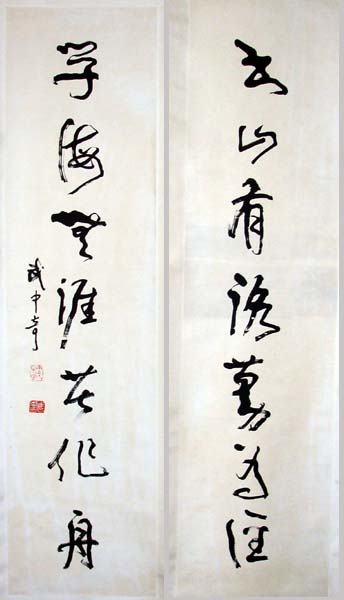 书山有路勤为径
学海无涯苦作舟
武中奇